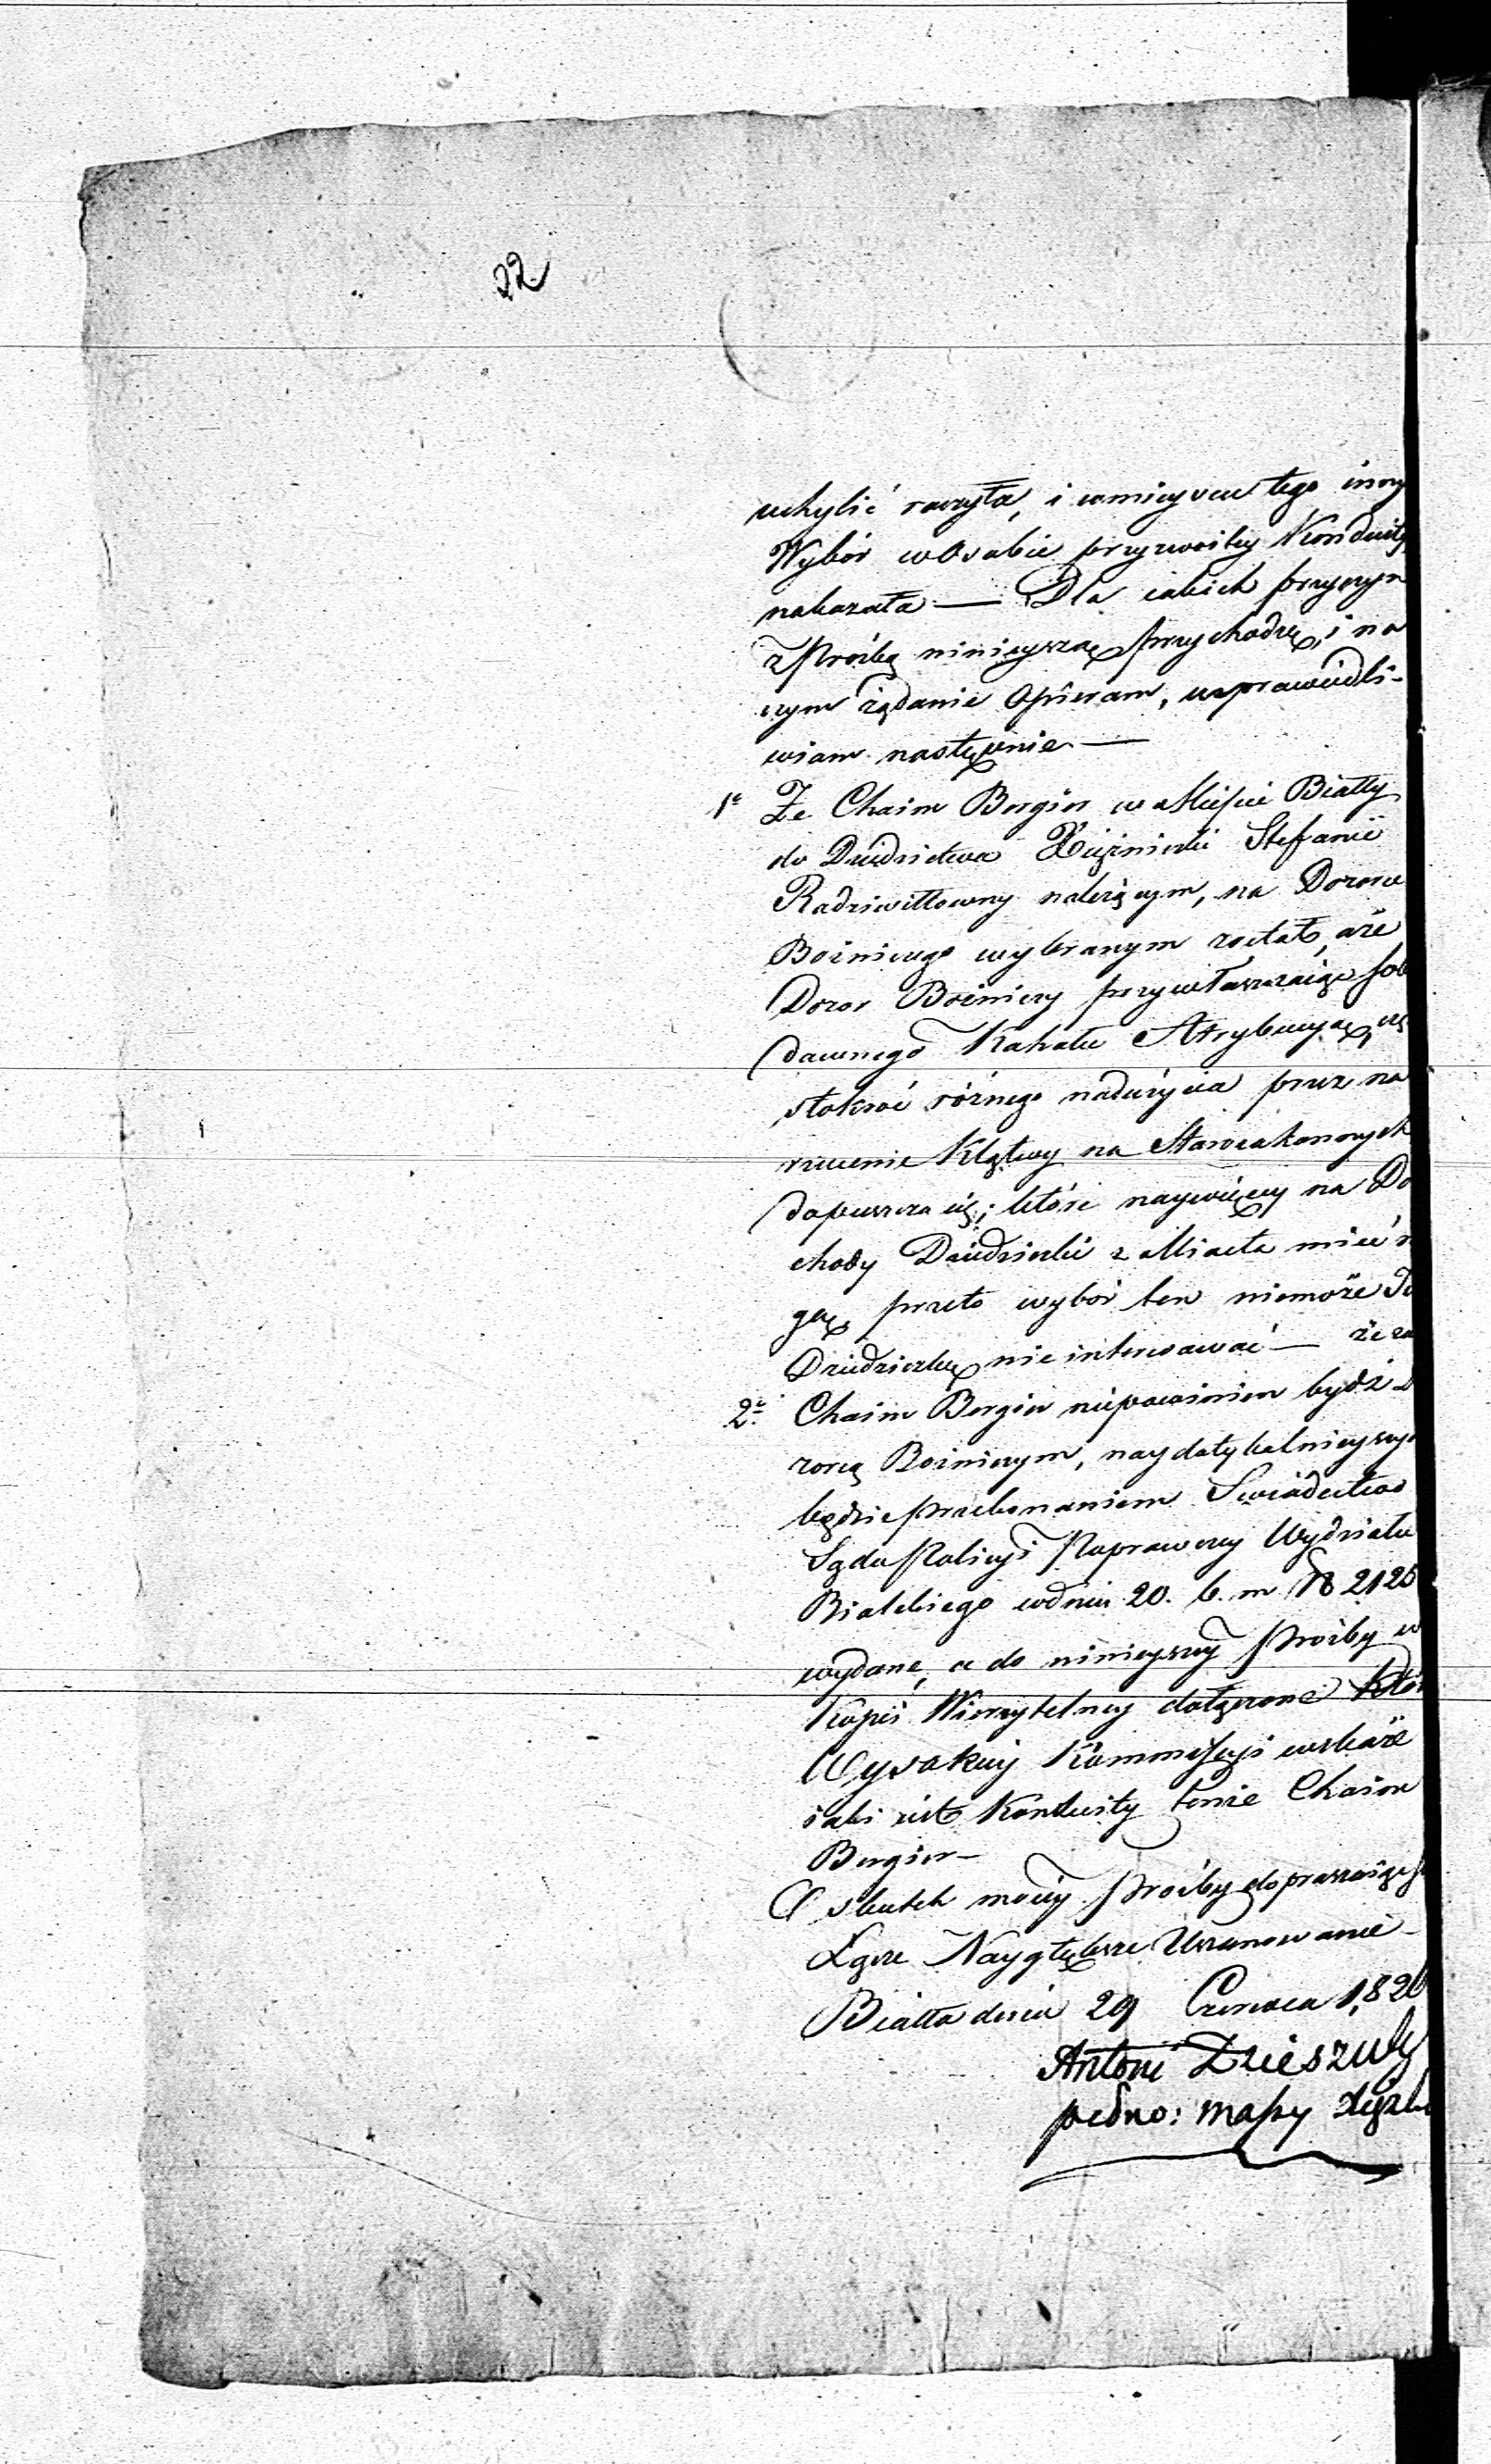 22
uchylić raczyła, i wmieyscu tego inny
Wybór wOsobie przyzwoitey Konduity
nakazała — Dla iakich przyczyn
z Prośbą ninieyszą przychodzę, i na
czym żądanie Opieram, usprawiedli-
wiam następnie —
1e Że Chaim Bergier w Mieście Białły
do Dziedzictwa Xiężniczki Stefanii
Radziwiłłowny należącym, na Dozorce
Bożniczego wybranym został, aże
Dozor Bożniczy przywłaszczaiąc sob
dawnego Kahału Atrybucyą,
stokroć różnego nadużycia przez na
rzucenie Klątwy na Starozakonnych
dopuszcza się; które naywięcy na Do
chody Dziedziczki z Miasta mieć
gą, przeto wybór ten niemoże
Dziedziczkę nie interesować — że
2e Chaim Bergier niepowinien bydź D
zorcą Bożniczym, naydotykalnieyszy
będzie przekonaniem Swiadectwo
Sądu Policyi Poprawczey Wydziału
Bialskiego wdniu 20. b. m № 2125
wydane, a do ninieyszey Prośby w
Kopii Wierzytelney dołączone Któr
Wysokiey Kommissyi wskaże
iaki iest Konduity tenże Chaim
Bergier —
O skutek moiey Prośby dopraszaiąc
Łączę Naygłębsze Uszanowanie —
Biała dnia 29 Czerwca 1826
Antoni
pełno: massy